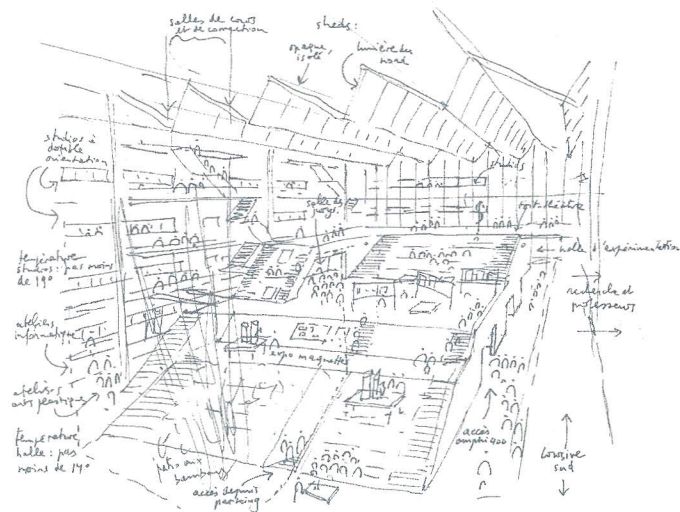 salles de cours
et de correction
sheds:
opaque,
isolé
lumière du
nord
studios à
double
orientation
studios
salle des
jurys
toit théâtre
halle d'expérimentation
température
studios: pas moins
de 19°
recherche et
professeurs
ateliers
informatique
expo maquettes
ateliers
arts plastiques
accès
amphi 400
température
halle: pas
moins de 14°
patio aux
bambous
accès depuis
parking
coursive
sud